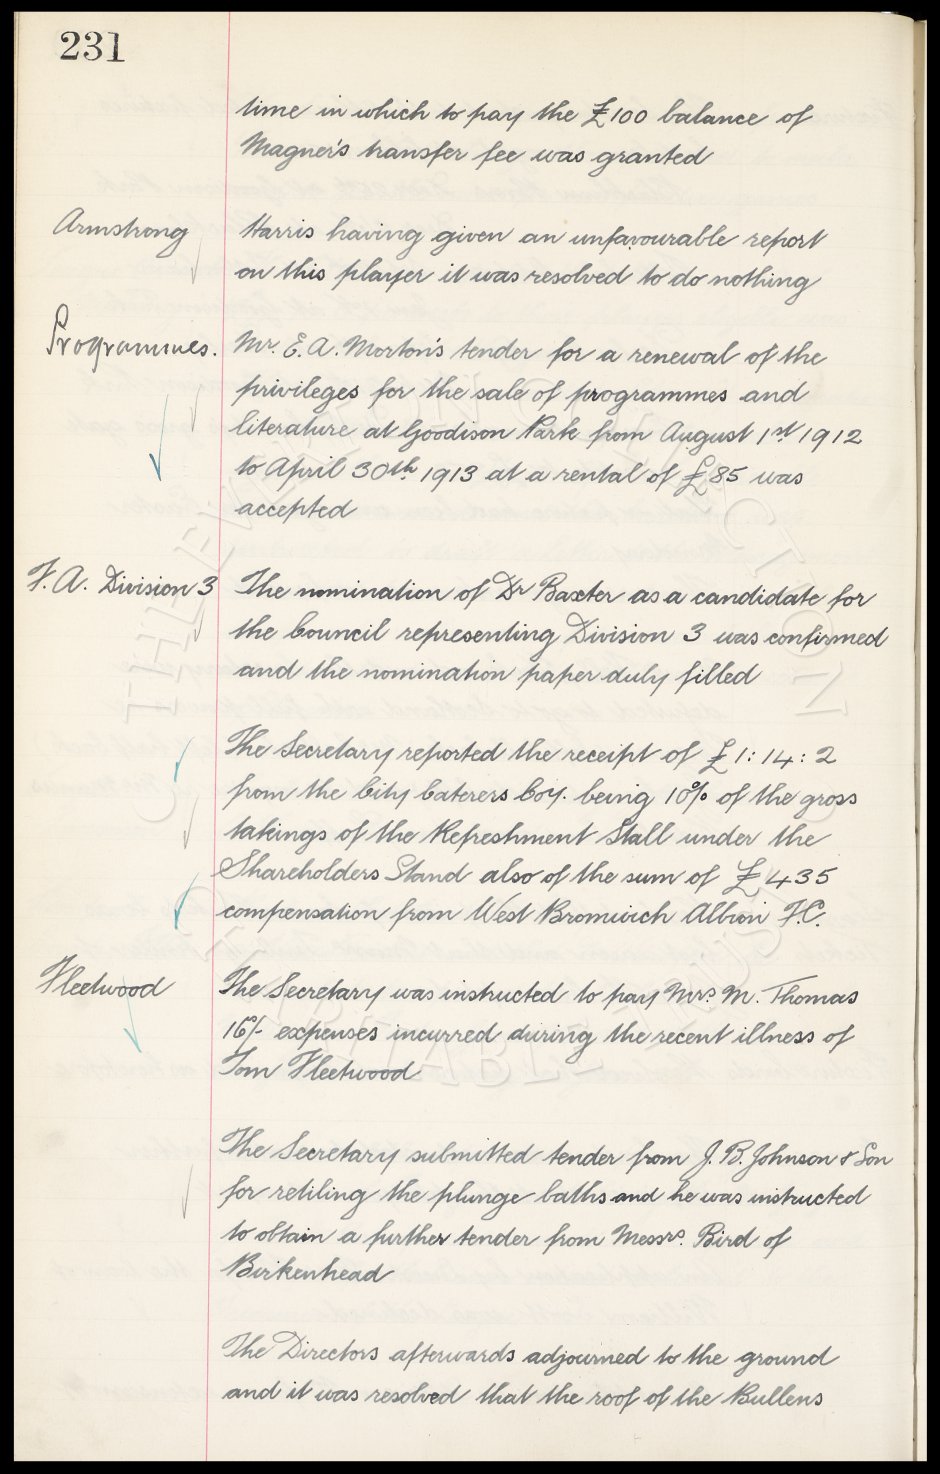 231
time in which to pay the £100 balance of
Magner's transfer fee was granted
Armstrong
Harris having given an unfavourable report
on this player it was resolved to do nothing
Programmes.
Mr. E. A. Morton's tender for a renewal of the
privileges for the sale of programmes and
literature at Goodison Park from August 1st 1912
to April 30th 1913 at a rental of £85 was
accepted
F. A. Division 3
The nomination of Dr Baxter as a candidate for
the Council representing Division 3 was confirmed
and the nomination paper duly filled
The Secretary reported the receipt of £1:14:2
from the City Caterers Coy. being 10% of the gross
takings of the Refreshment Stall under the
Shareholders Stand also of the sum of £435
compensation from West Bromwich Albion F.C.
Fleetwood
The Secretary was instructed to pay Mrs. M. Thomas
16/- expenses incurred during the recent illness of
Tom Fleetwood
The Secretary submitted tender from J. B. Johnson & Son
for retiling the plunge baths and he was instructed
to obtain a further tender from Messrs. Bird of
Birkenhead
The Directors afterwards adjourned to the ground
and it was resolved that the roof of the Bullens